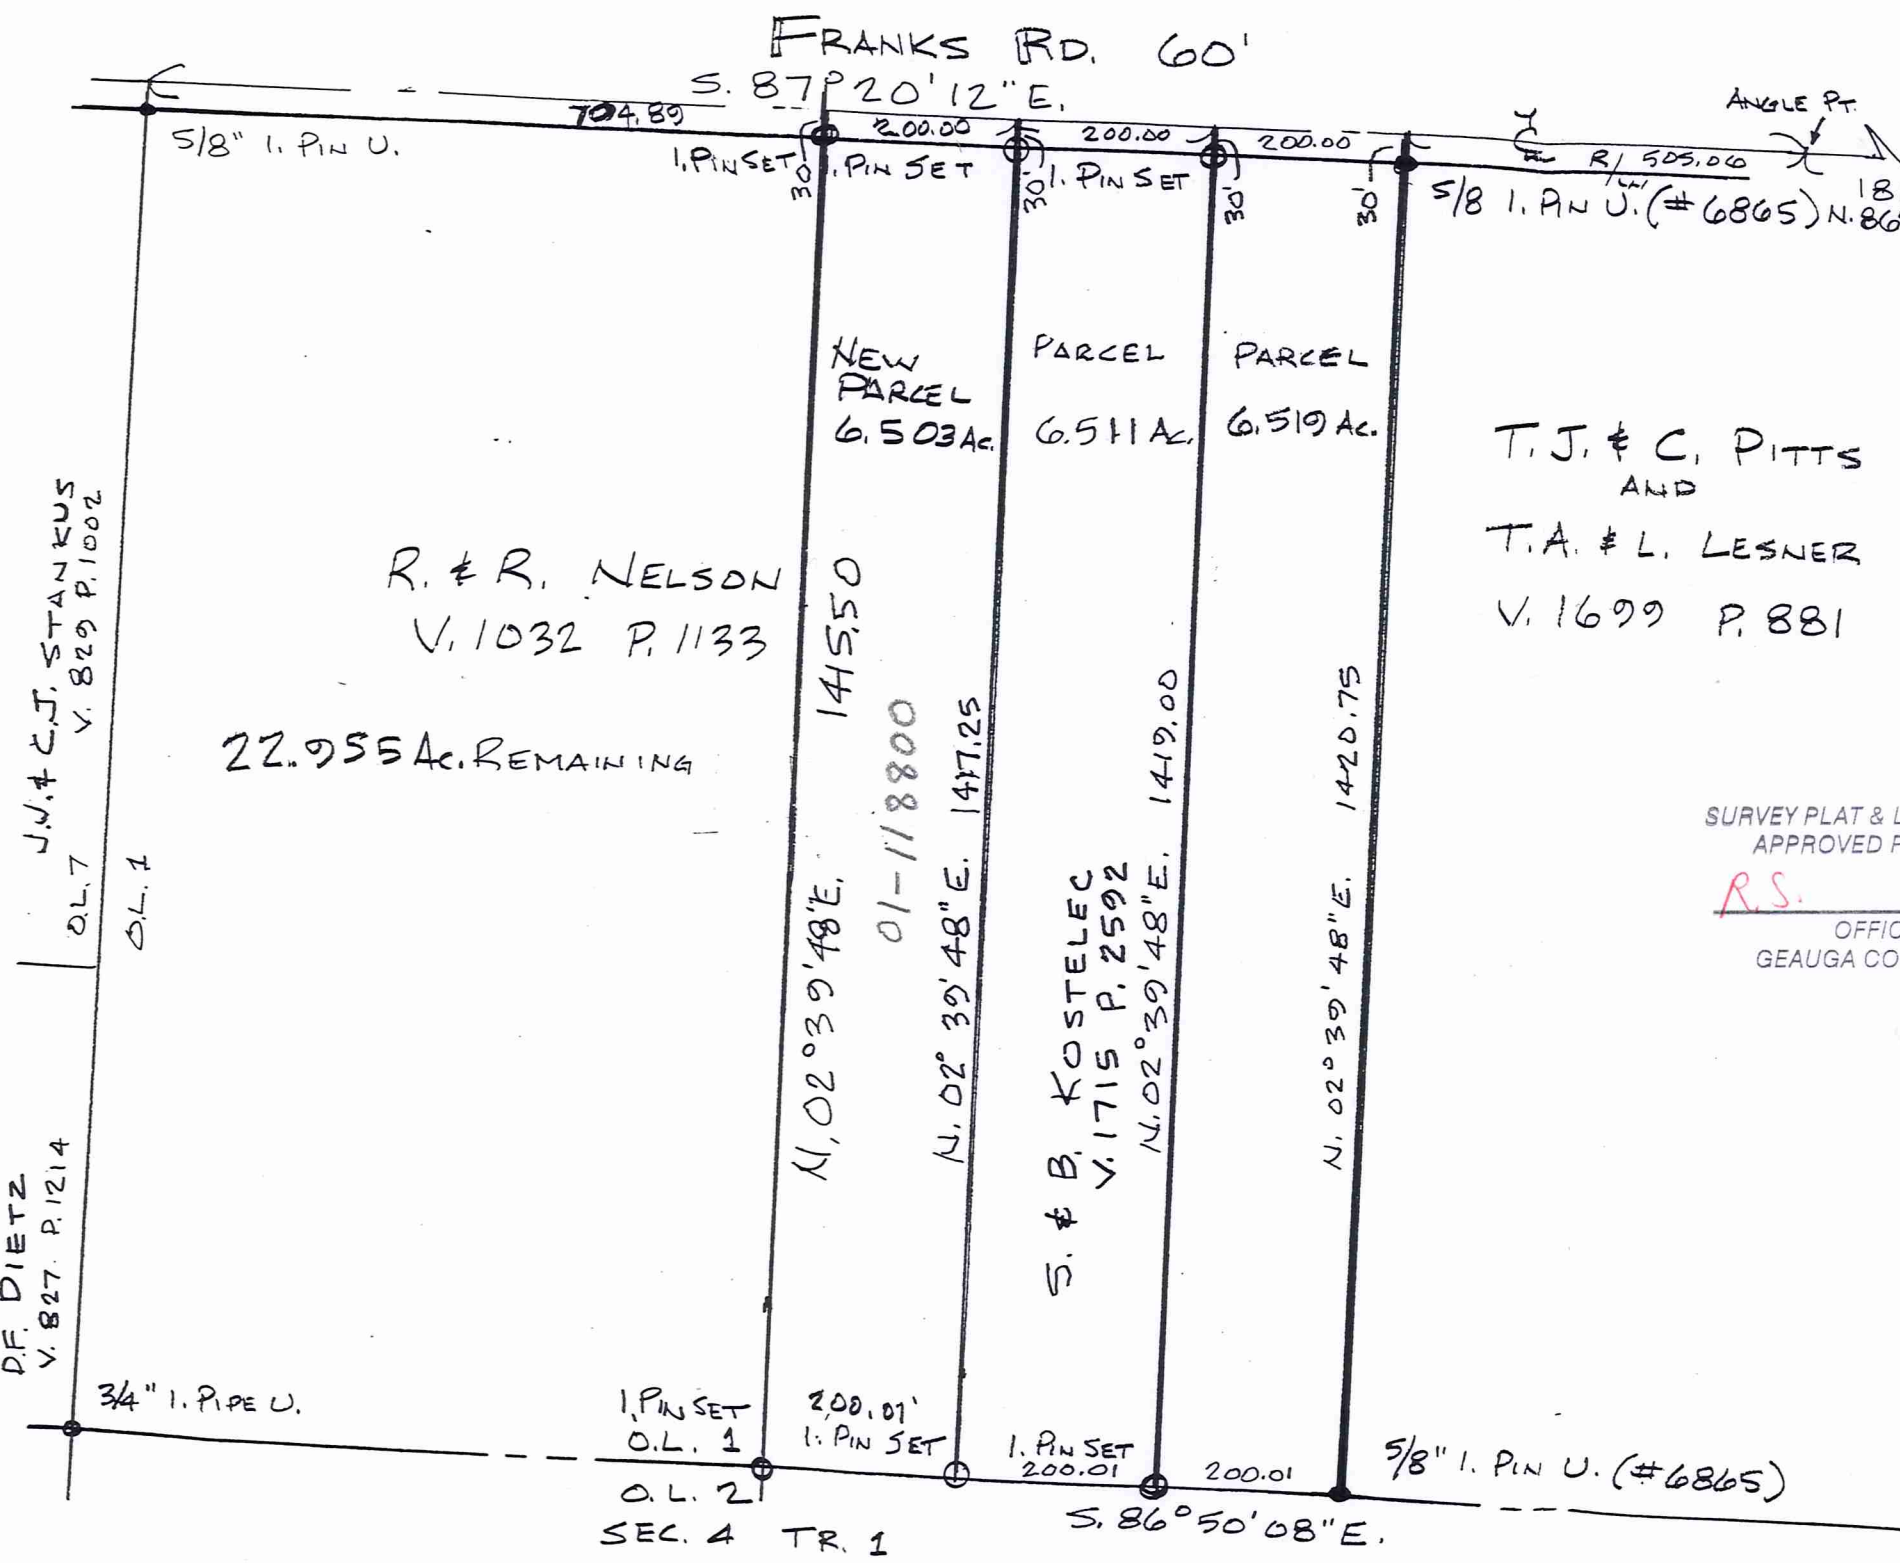 FRANKS RD. 60'
S. 87° 20' 12" E.
704.89
200.00
200.00
200.00
ANGLE PT.
R/ 505.06
18
5/8" I. PIN U.
I. PIN SET
I. PIN SET
I. PIN SET
5/8 I. PIN U. (#6865) N. 86
30'
30'
30'
30'
NEW
PARCEL
6.503 Ac.
PARCEL
6.511 Ac.
PARCEL
6.519 Ac.
T.J. & C. PITTS
AND
T.A. & L. LESNER
V. 1699 P. 881
R. & R. NELSON
V. 1032 P. 1133
22.955 Ac. REMAINING
J.W. & C.J. STANKUS
V. 829 P. 1002
O.L. 7
O.L. 1
D.F. DIETZ
V. 827 P. 1214
N. 02° 39' 48" E. 1415.50
01-118800
N. 02° 39' 48" E. 1417.25
S. & B. KOSTELEC
V. 1715 P. 2592
N. 02° 39' 48" E. 1419.00
N. 02° 39' 48" E. 1420.75
SURVEY PLAT & L
APPROVED P
R.S.
OFFIC
GEAUGA CO
3/4" I. PIPE U.
I. PIN SET
O.L. 1
200.01'
I. PIN SET
I. PIN SET
200.01
200.01
5/8" I. PIN U. (#6865)
O.L. 2
SEC. 4 TR. 1
S. 86° 50' 08" E.